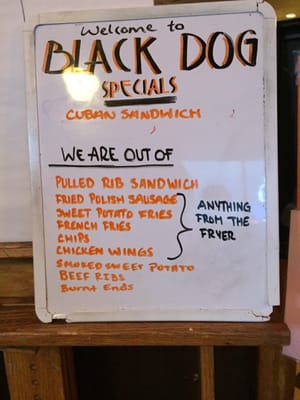 Welcome to
BLACK DOG
SPECIALS
CUBAN SANDWICH
WE ARE OUT OF
PULLED RIB SANDWICH
FRIED POLISH SAUSAGE
SWEET POTATO FRIES
FRENCH FRIES
CHIPS
CHICKEN WINGS
ANYTHING
FROM THE
FRYER
SMOKED SWEET POTATO
BEEF RIBS
Burnt Ends